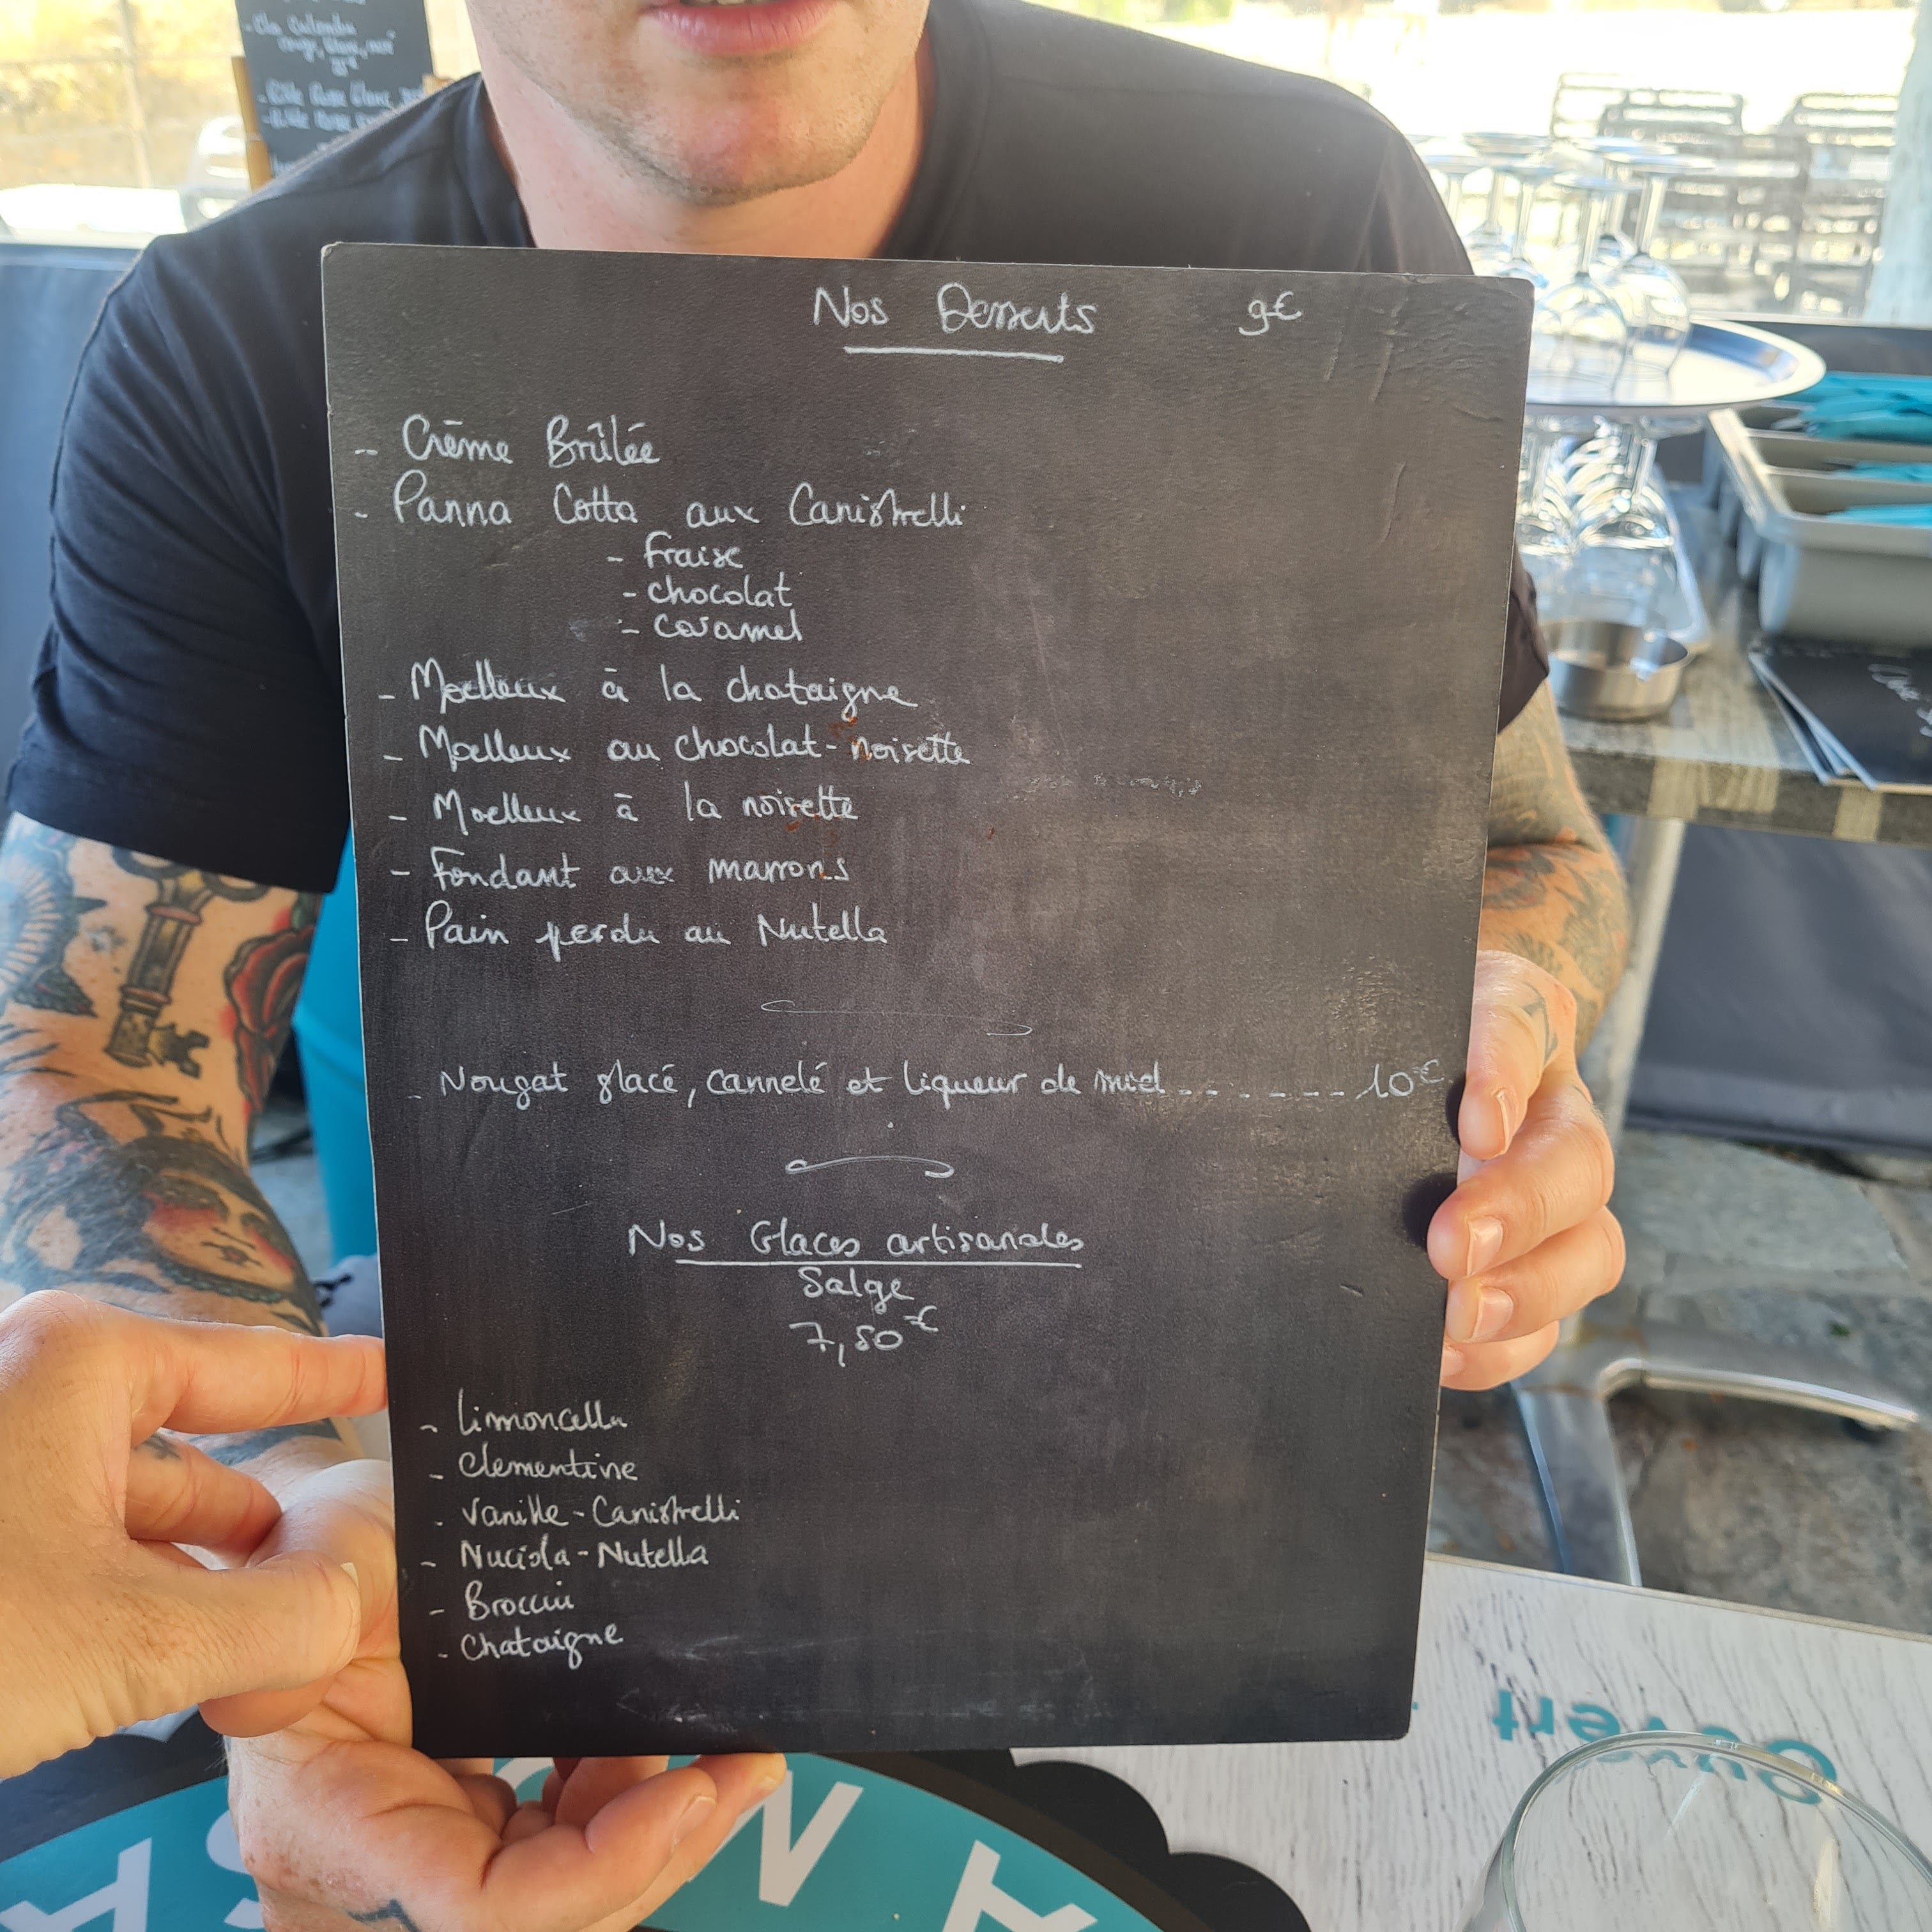 Nos Desserts 9€
-- Crème Brûlée
- Panna Cotta aux Canistrelli
- Fraise
- chocolat
- caramel
- Moelleux à la chataigne
- Moelleux au chocolat-noisette
- Moelleux à la noisette
- Fondant aux marrons
- Pain perdu au Nutella
- Nougat glacé, cannelé et liqueur de miel - - - - - - - 10€
Nos Glaces artisanales
Salge
7,50€
- Limoncellu
- Clementine
- Vanille-Canistrelli
- Nuciola-Nutella
- Brocciu
- Chataigne
Ouvert